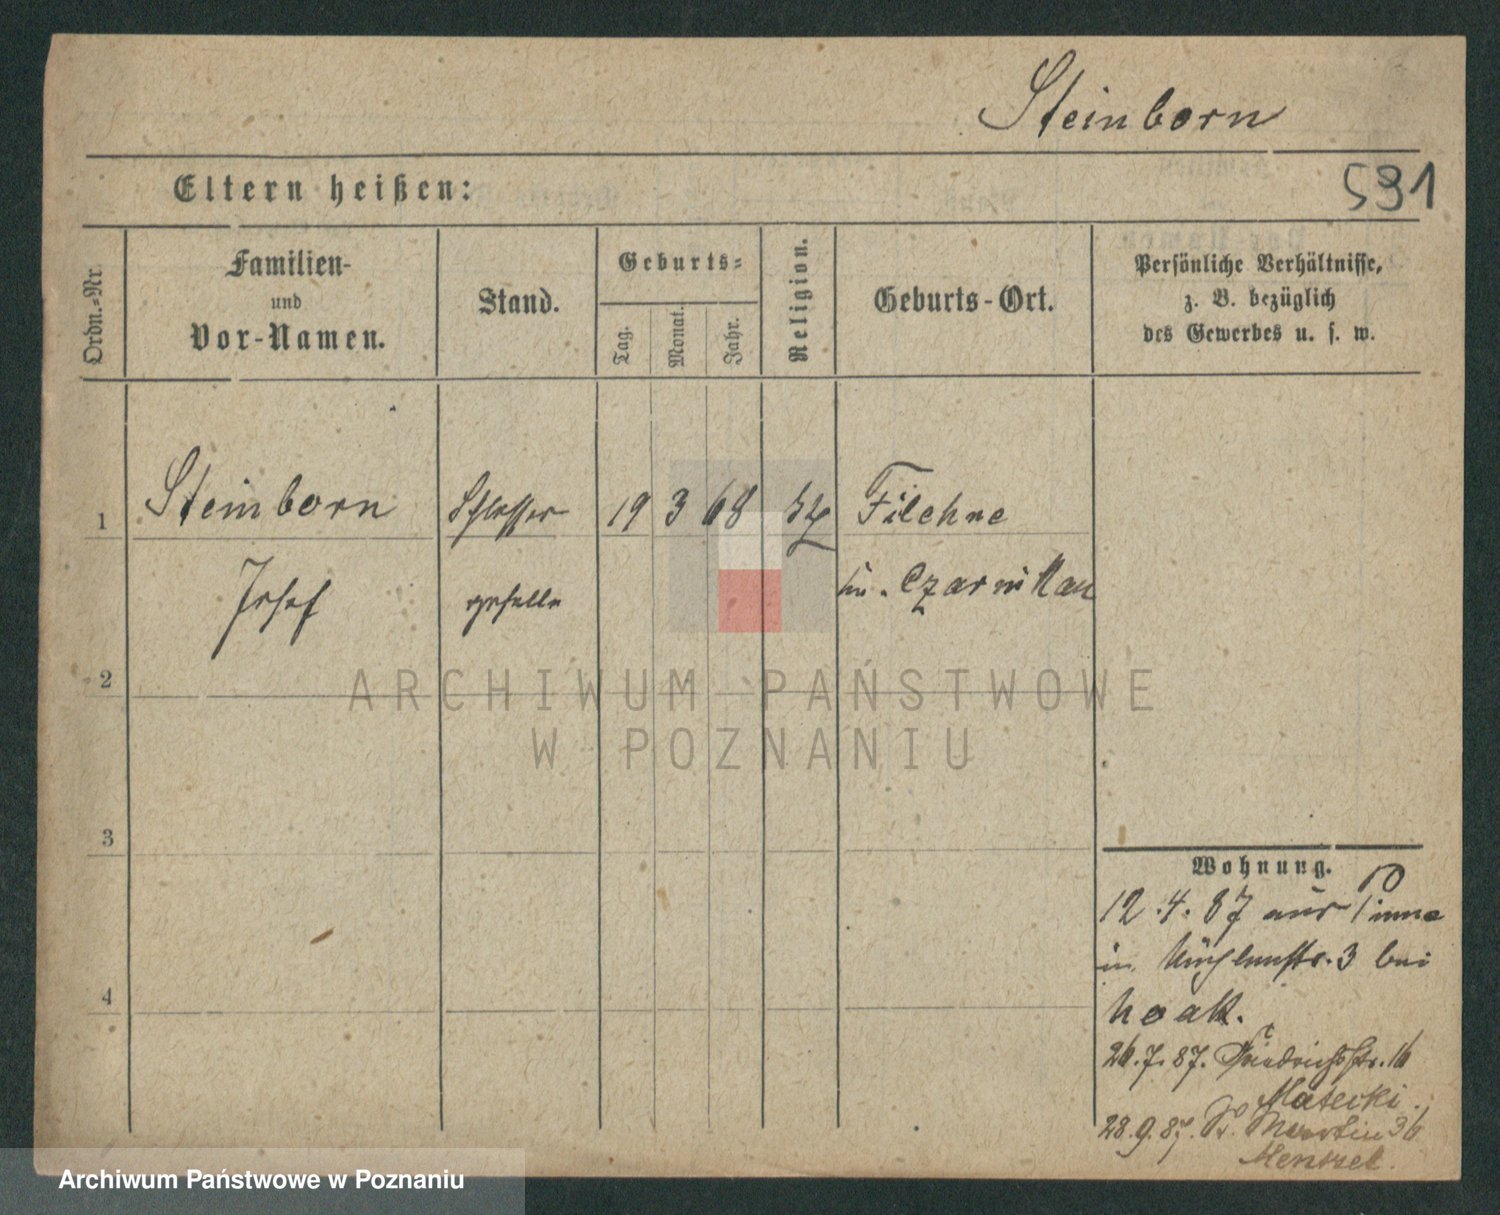 Steinborn
Eltern heißen:
591
Ordn.-Nr.
Familien-
und
Vor-Namen.
Stand.
Geburts-
Tag.
Monat.
Jahr.
Religion.
Geburts-Ort.
Persönliche Verhältnisse,
z. B. bezüglich
des Gewerbes u. s. w.
1
Steinborn
Schlosser
19 3 68
Filehne
Josef
geselle
Czarnikau
2
ARCHIWUM PAŃSTWOWE
W POZNANIU
3
Wohnung.
12.4.87 aus Pinne
in Mühlenstr. 3 bei
Noak.
4
26.7.87. Friedrichstr. 16
Matecki.
28.9.87. St. Martin 36
Menzel.
Archiwum Państwowe w Poznaniu